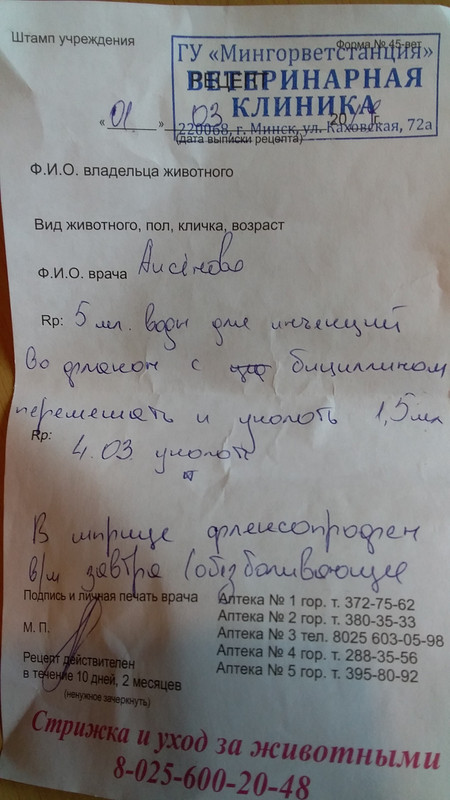 Штамп учреждения
Форма № 45-вет
ГУ «Мингорветстанция»
РЕЦЕПТ
ВЕТЕРИНАРНАЯ
КЛИНИКА
« 01 » 03 20 г.
220068, г. Минск, ул. Каховская, 72а
(дата выписки рецепта)
Ф.И.О. владельца животного
Вид животного, пол, кличка, возраст
Ф.И.О. врача Аксёнова
Rp: 5 мл. воды для инъекций
во флакон с бициллином
перемешать и уколоть 1,5 мл
Rp:
4.03 уколоть
В шприце флексопрофен
в/м завтра (обезболивающее
Подпись и личная печать врача
М. П.
Рецепт действителен
в течение 10 дней, 2 месяцев
(ненужное зачеркнуть)
Аптека № 1 гор. т. 372-75-62
Аптека № 2 гор. т. 380-35-33
Аптека № 3 тел. 8025 603-05-98
Аптека № 4 гор. т. 288-35-56
Аптека № 5 гор. т. 395-80-92
Стрижка и уход за животными
8-025-600-20-48